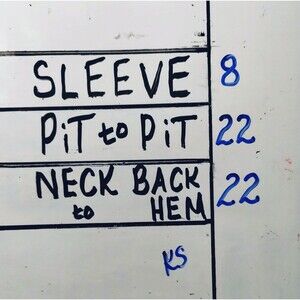 SLEEVE 8
PiT to PiT 22
NECK BACK 22
to HEM
KS